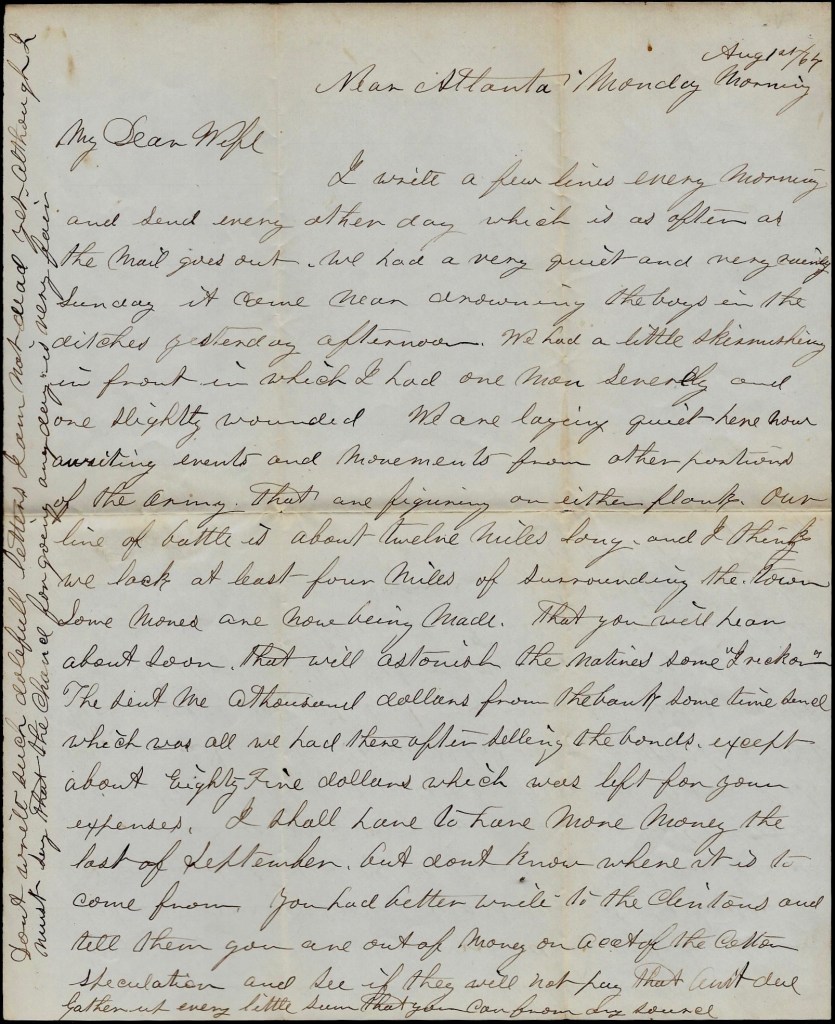 Aug 1st/64
Near Atlanta Monday Morning
My Dear Wife
I write a few lines every Morning
and send every other day which is as often as
the Mail goes out. We had a very quiet and very rainy
Sunday it come near drowning the boys in the
ditches yesterday afternoon. We had a little skirmishing
in front in which I had one man severely and
one slightly wounded We are laying quiet here now
awaiting events and movements from other portions
of the Army. That are figuring on either flank. Our
line of battle is about twelve Miles long. and I think
we lack at least four Miles of surrounding the town
Some Moves are now being Made. That you will hear
about soon. That will astonish the natives some "I reckon"
The sent me a thousand dollars from the bank some time
which was all we had there after selling the bonds. except
about Eighty Five dollars which was left for your
expenses. I shall have to have More Money the
last of September. but dont know where it is to
come from You had better write to the Clintons and
tell them you are out of Money on acct of the Cotton
speculation and see if they will not pay that am't due
Gather up every little sum that you can from any source
Dont write such dolefull letters I am not dead yet although I
must say that the chance for going any day is very fair